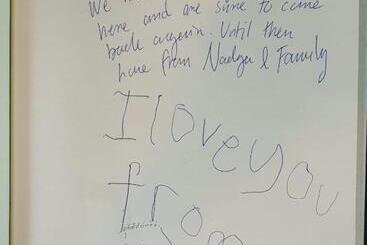 We
here and are sure to come
back again. Until then
love from Nadya & Family
I love you
from